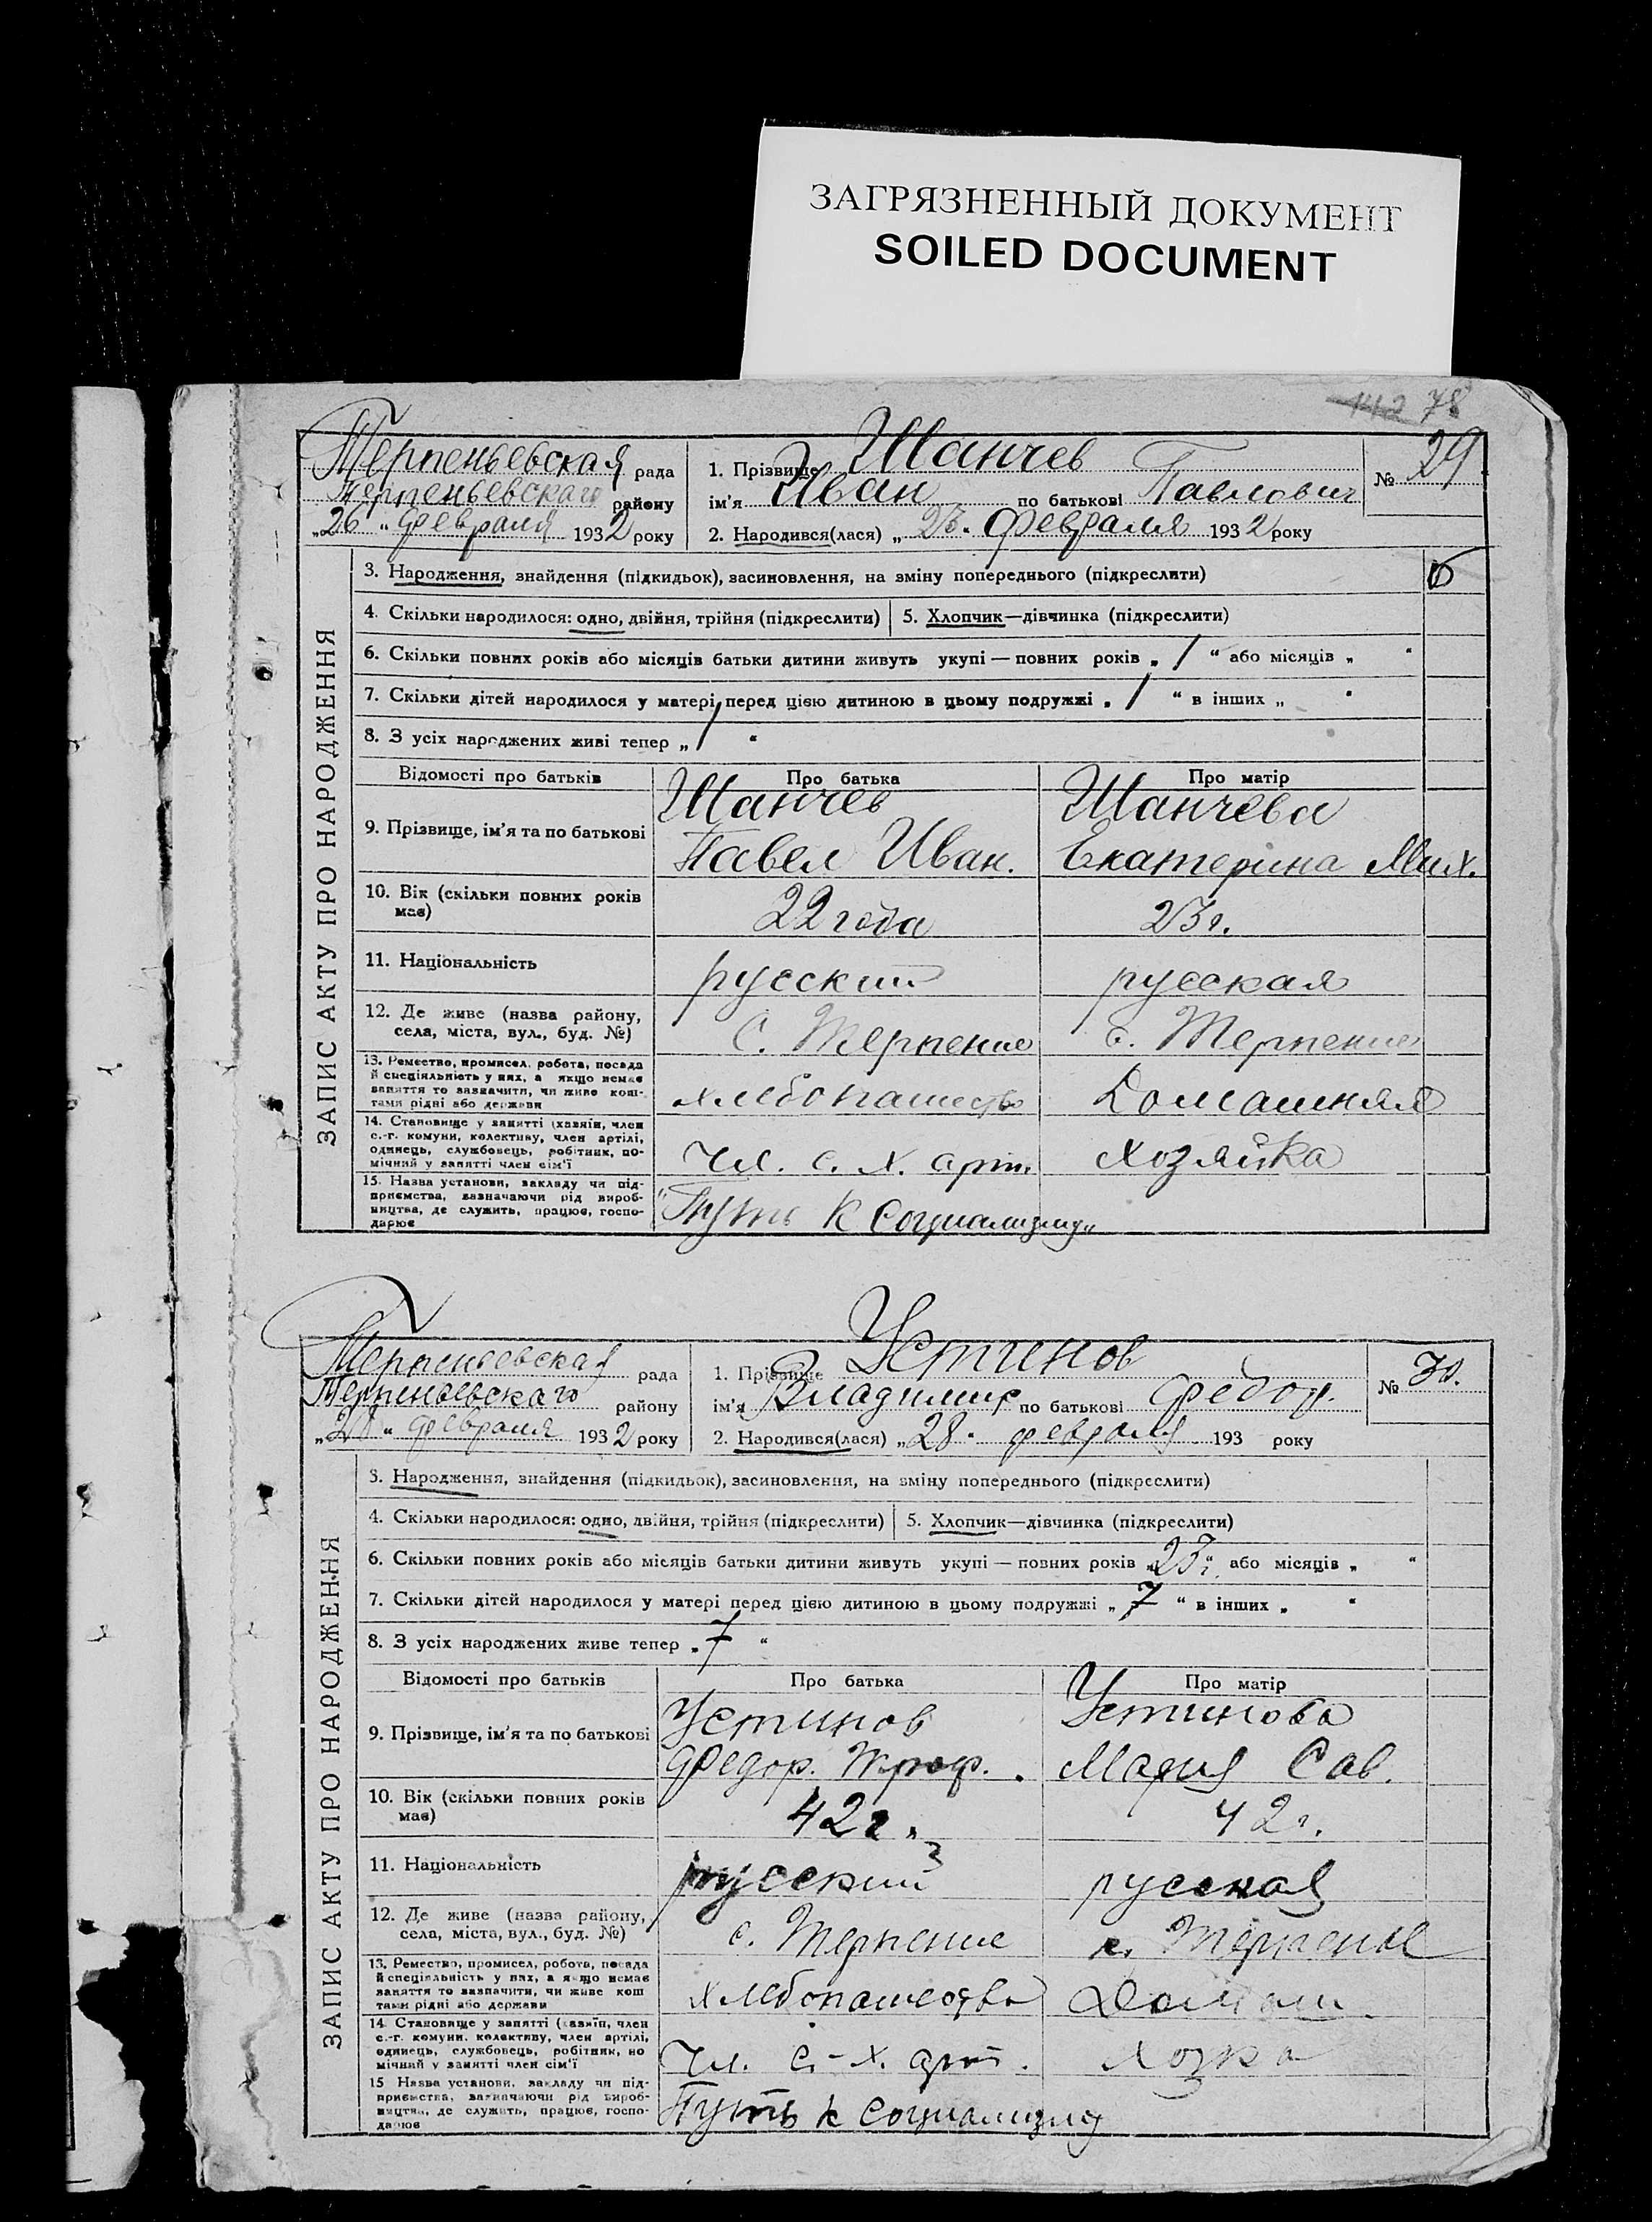 ЗАГРЯЗНЕННЫЙ ДОКУМЕНТ
SOILED DOCUMENT
142 78
Терпеньевская рада
Терпеньевскаго району
„26“ февраля 1932 року
1. Прізвище Шанчев
ім'я Иван по батькові Павлович
2. Народився(лася) „23“ февраля 1932 року
№ 29
ЗАПИС АКТУ ПРО НАРОДЖЕННЯ
3. Народження, знайдення (підкидьок), засиновлення, на зміну попереднього (підкреслити)
4. Скільки народилося: одно, двійня, трійня (підкреслити) 5. Хлопчик—дівчинка (підкреслити)
6. Скільки повних років або місяців батьки дитини живуть укупі — повних років „1“ або місяців „ “
7. Скільки дітей народилося у матері перед цією дитиною в цьому подружжі „1“ в інших „ “
8. З усіх народжених живі тепер „1“
Відомості про батьків Про батька Про матір
9. Прізвище, ім'я та по батькові Шанчев Шанчева
Павел Иван. Екатерина Мих.
10. Вік (скільки повних років має) 22 года 23 г.
11. Національність русский русская
12. Де живе (назва району, села, міста, вул., буд. №) С. Терпение с. Терпение
13. Ремество, промисел, робота, посада
й спеціяльність у них, а якщо немає
заняття то зазначити, чи живе кош-
тами рідні або держави
хлебопашество Домашняя
14. Становище у занятті (хазяїн, член
с.-г. комуни, колективу, член артілі,
одинець, службовець, робітник, по-
мічний у занятті член сім'ї
Чл. с. х. арт. хозяйка
15. Назва установи, закладу чи під-
приємства, зазначаючи рід вироб-
ництва, де служить, працює, госпо-
дарює
"Путь к социализму"
Терпеньевская рада
Терпеньевскаго району
„28“ февраля 1932 року
1. Прізвище Устинов
ім'я Владимир по батькові Федор.
2. Народився(лася) „28“ февраля 193 року
№ 30.
ЗАПИС АКТУ ПРО НАРОДЖЕННЯ
3. Народження, знайдення (підкидьок), засиновлення, на зміну попереднього (підкреслити)
4. Скільки народилося: одно, двійня, трійня (підкреслити) 5. Хлопчик—дівчинка (підкреслити)
6. Скільки повних років або місяців батьки дитини живуть укупі — повних років „23 г.“ або місяців „ “
7. Скільки дітей народилося у матері перед цією дитиною в цьому подружжі „7“ в інших „ “
8. З усіх народжених живе тепер „7“
Відомості про батьків Про батька Про матір
9. Прізвище, ім'я та по батькові Устинов Устинова
Федор. Троф. Мария Сав.
10. Вік (скільки повних років має) 42 г. 42 г.
11. Національність русский русская
12. Де живе (назва району, села, міста, вул., буд. №) с. Терпение с. Терпение
13. Ремество, промисел, робота, посада
й спеціяльність у них, а якщо немає
заняття то зазначити, чи живе кош
тами рідні або держави
хлебопашество Домаш.
14. Становище у занятті (хазяїн, член
с.-г. комуни, колективу, член артілі,
одинець, службовець, робітник, по
мічний у занятті член сім'ї
Чл. с.-х. арт. хозка
15 Назва установи, закладу чи під-
приємства, зазначаючи рід вироб-
ництва, де служить, працює, госпо-
дарює
Путь к социализму